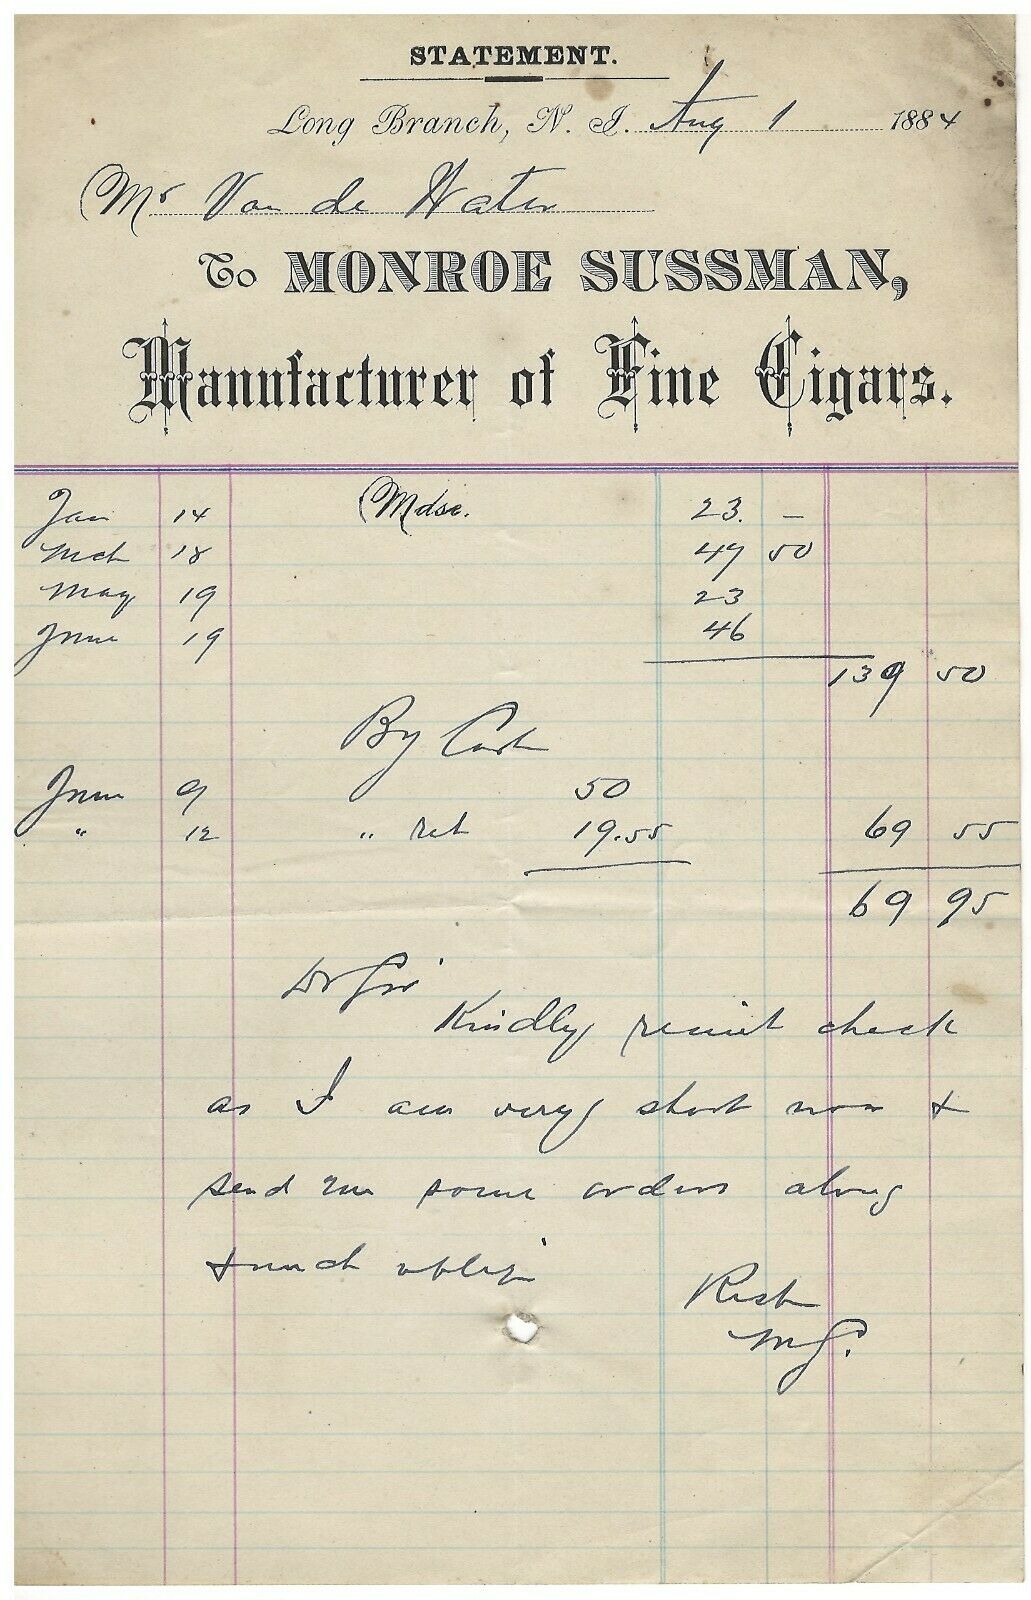 STATEMENT.
Long Branch, N. J. Aug 1 1884
Mr Van de Water
To MONROE SUSSMAN,
Manufacturer of Fine Cigars.
Jan 14 Mdse. 23. –
Mch 18 47 50
May 19 23
June 19 46
139 50
By Cash
June 9 50
" 12 " ret 19.55 69 55
69 95
Dr Sir
Kindly remit check
as I am very short now &
send me some orders along
& much oblige
Resp
MS.